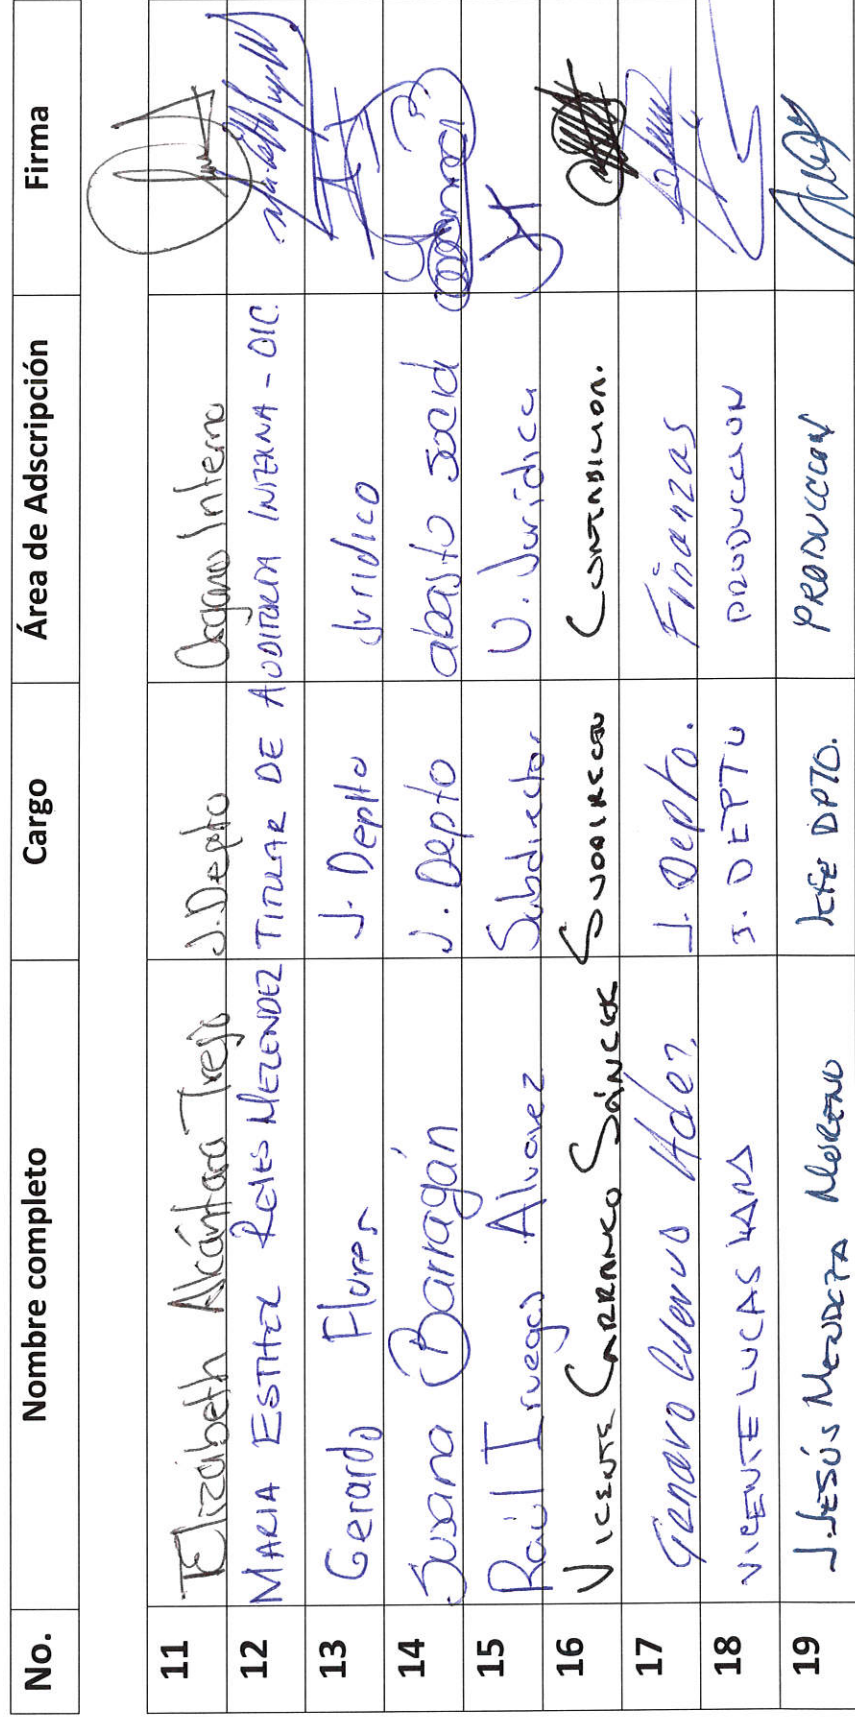 No. Nombre completo Cargo Área de Adscripción Firma
11 Elizabeth Alcántara Trejo J. Depto Organo Interno
12 MARIA ESTHER REYES MELENDEZ TITULAR DE AUDITORIA INTERNA - OIC.
13 Gerardo Flores J. Deptto Jurídico
14 Susana Barragán J. Depto abasto social
15 Raúl Iruegas Alvarez Subdirector U. Jurídica
16 VICENTE CARRANCO SÁNCHEZ SUBDIRECCION CONTABILIDAD.
17 Genaro Hdez. J. Depto. Finanzas
18 VICENTE LUCAS J. DEPTO PRODUCCION
19 J. JESÚS MENDOZA MORENO Jefe DPTO. PRODUCCION